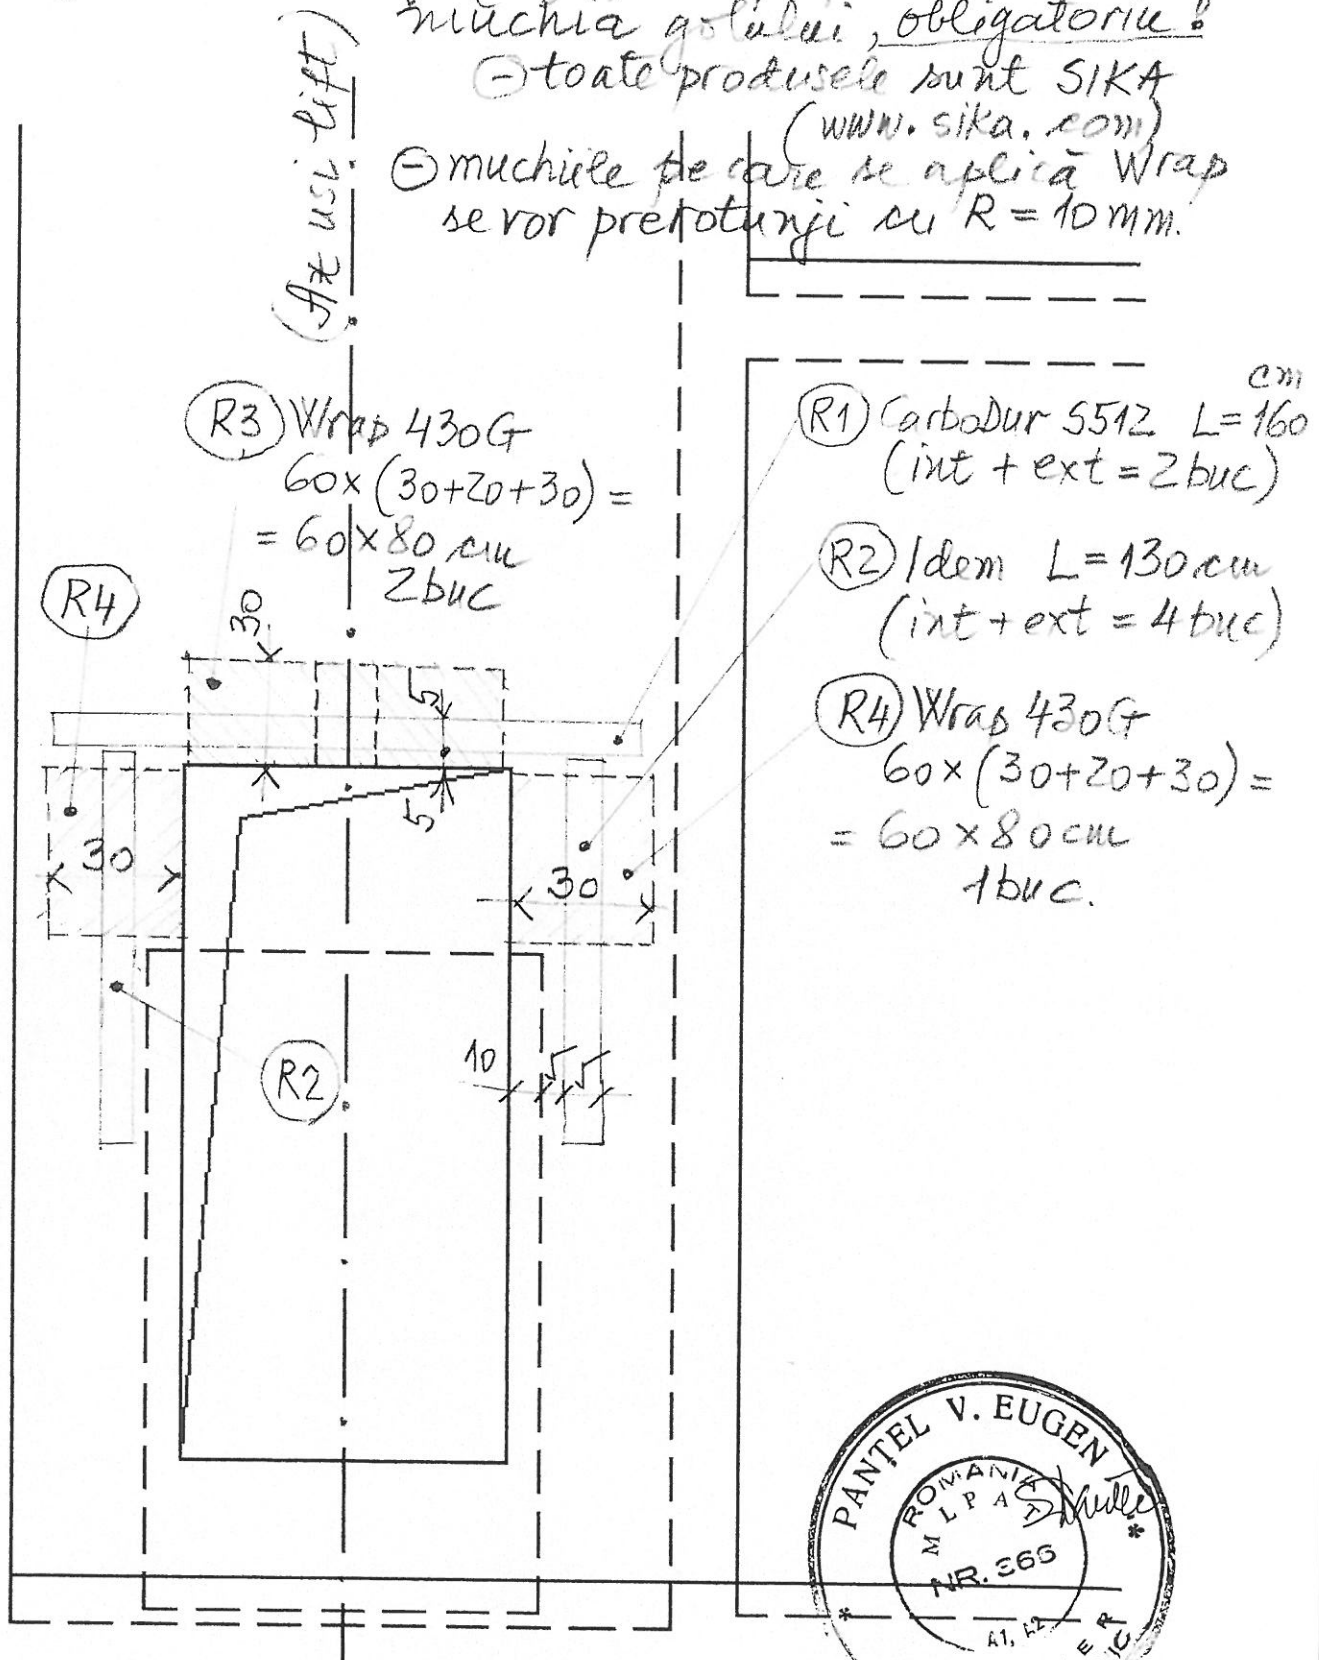 muchia golului, obligatoriu!
⊖ toate produsele sunt SIKA
(www.sika.com)
⊖ muchiile pe care se aplică Wrap
se vor prerotunji cu R = 10 mm.
(Ax uși lift)
R3 Wrap 430G
60x(30+20+30) =
= 60x80 cm
2buc
R4
30
5
5
30
30
R2
10
5
5
cm
R1 CarboDur S512 L=160
(int + ext = 2buc)
R2 Idem L=130 cm
(int + ext = 4buc)
R4 Wrap 430G
60x(30+20+30) =
= 60x80cm
1buc.
PANȚEL V. EUGEN
ROMANIA
M L P A T
NR. 366
A1, A2